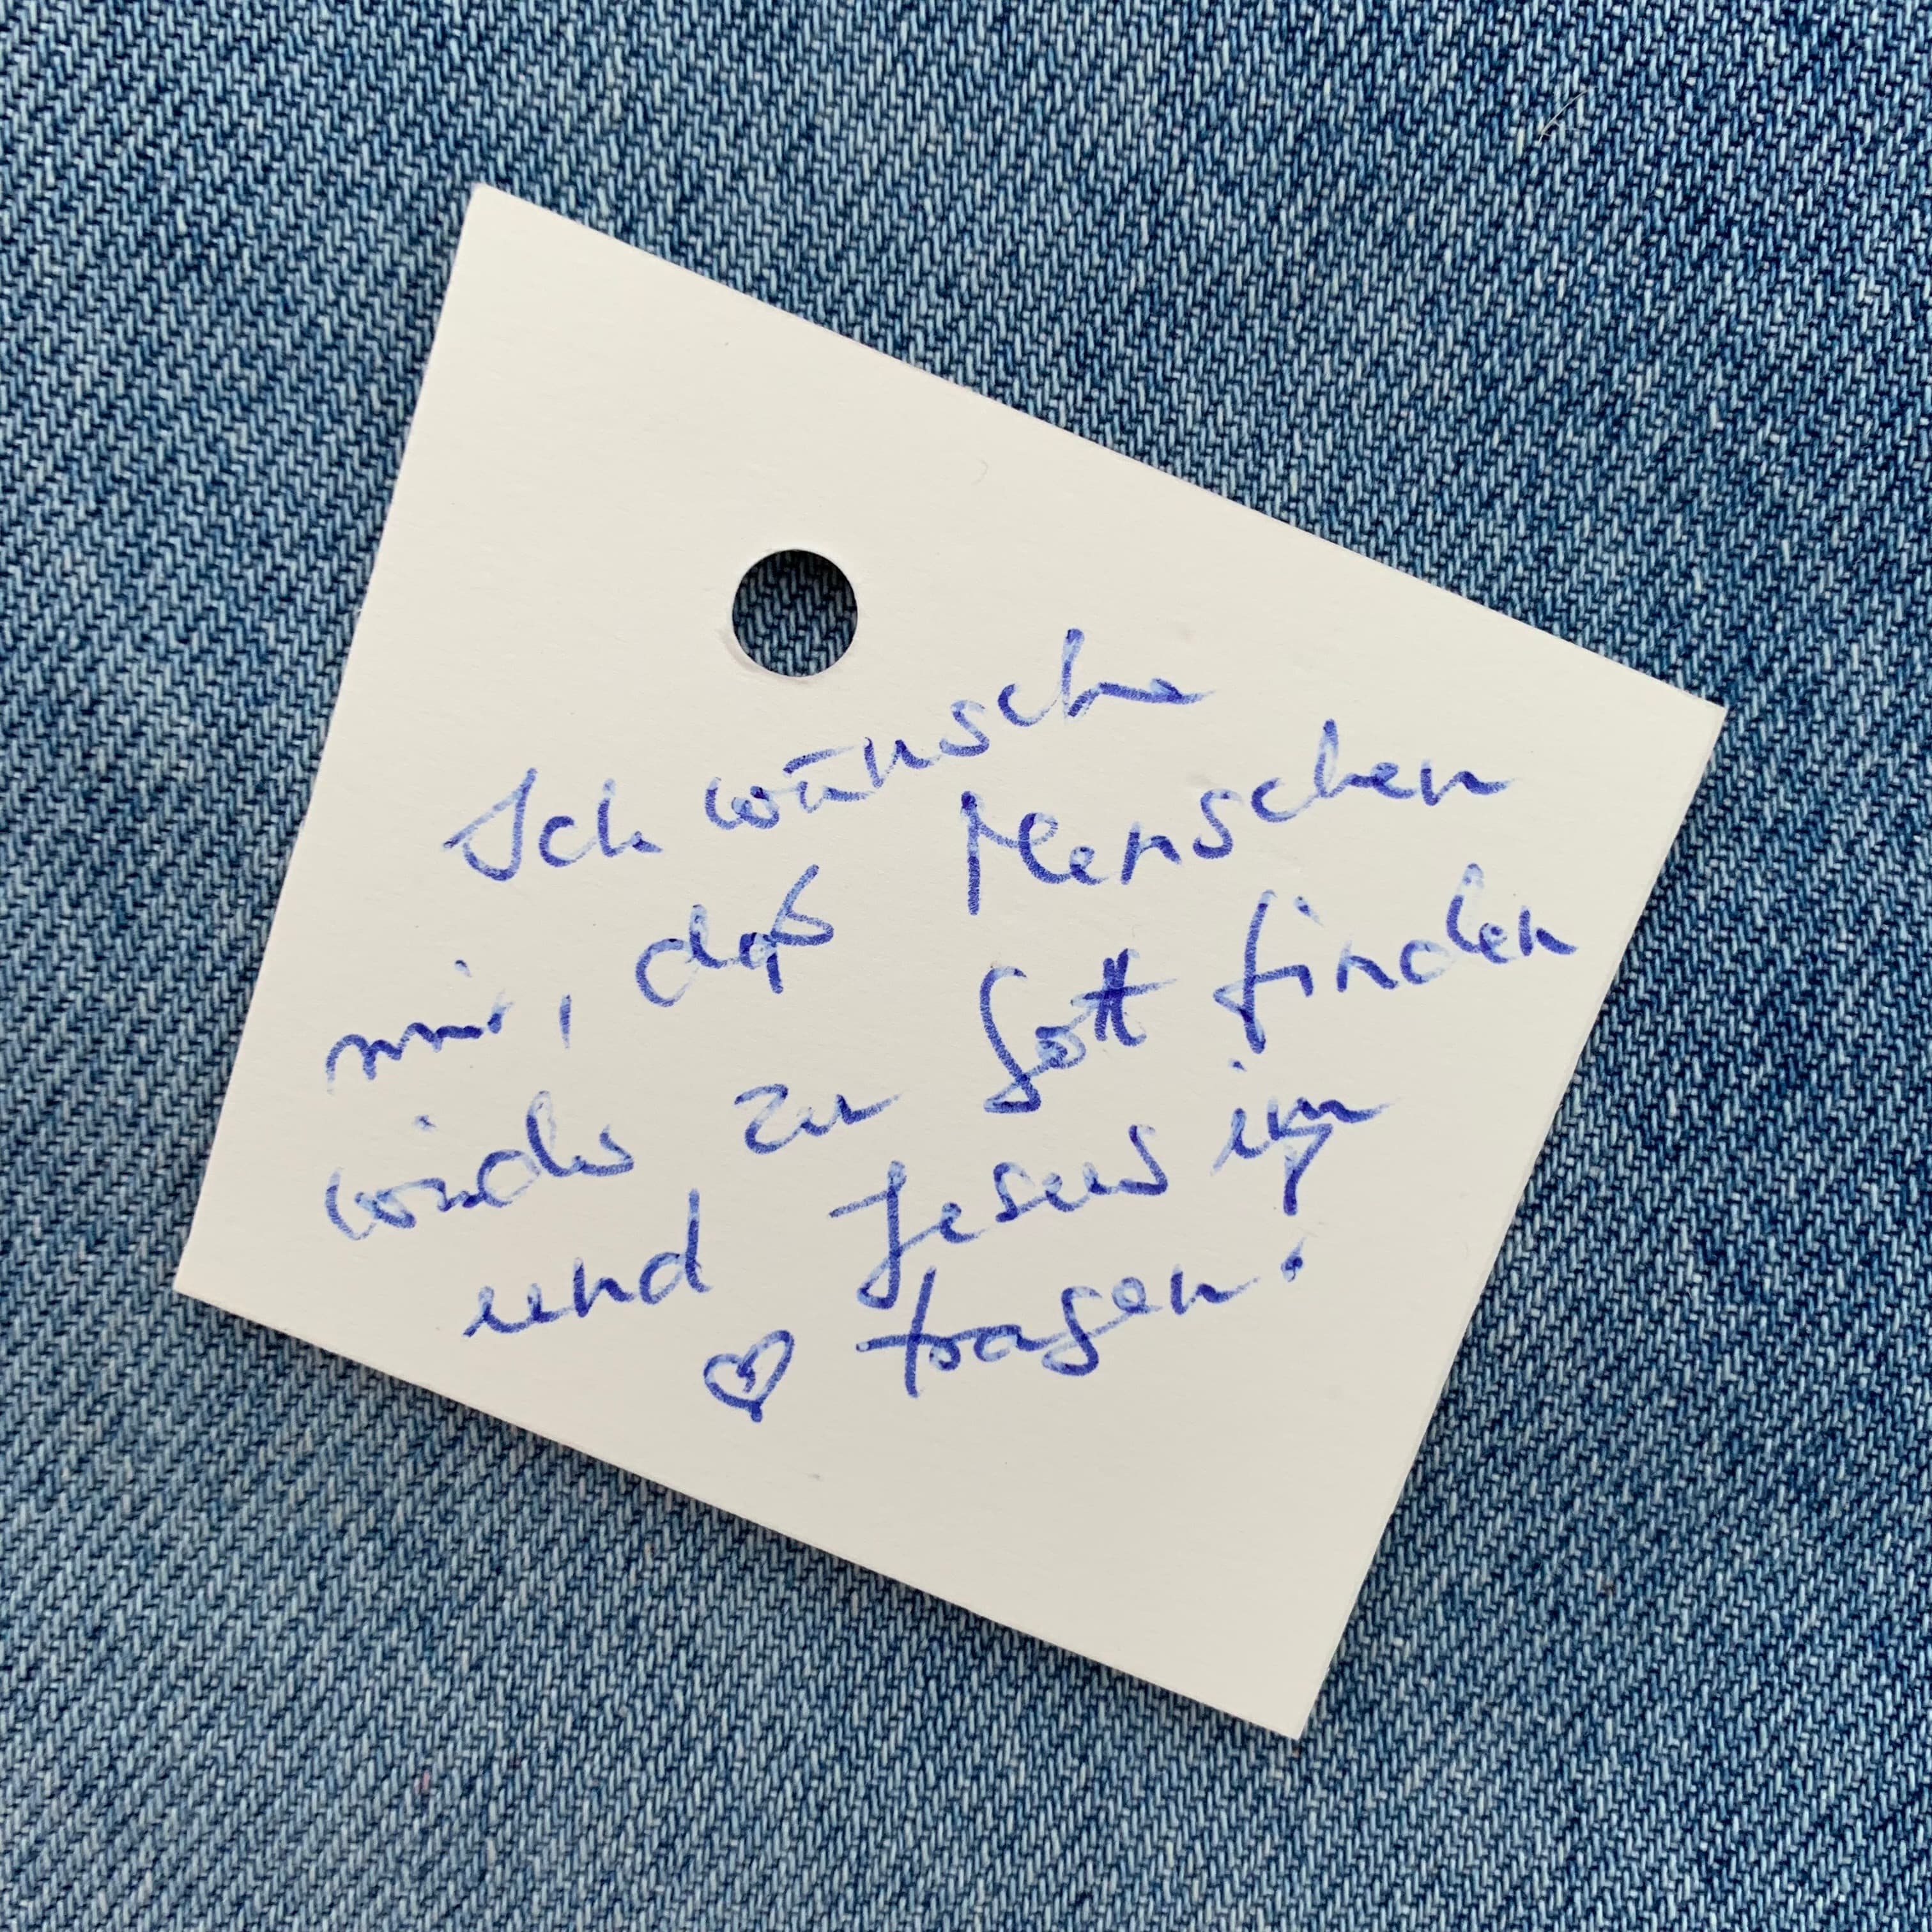 Ich wünsche
mir, daß Menschen
wieder zu Gott finden
und Jesus im
♡ tragen!